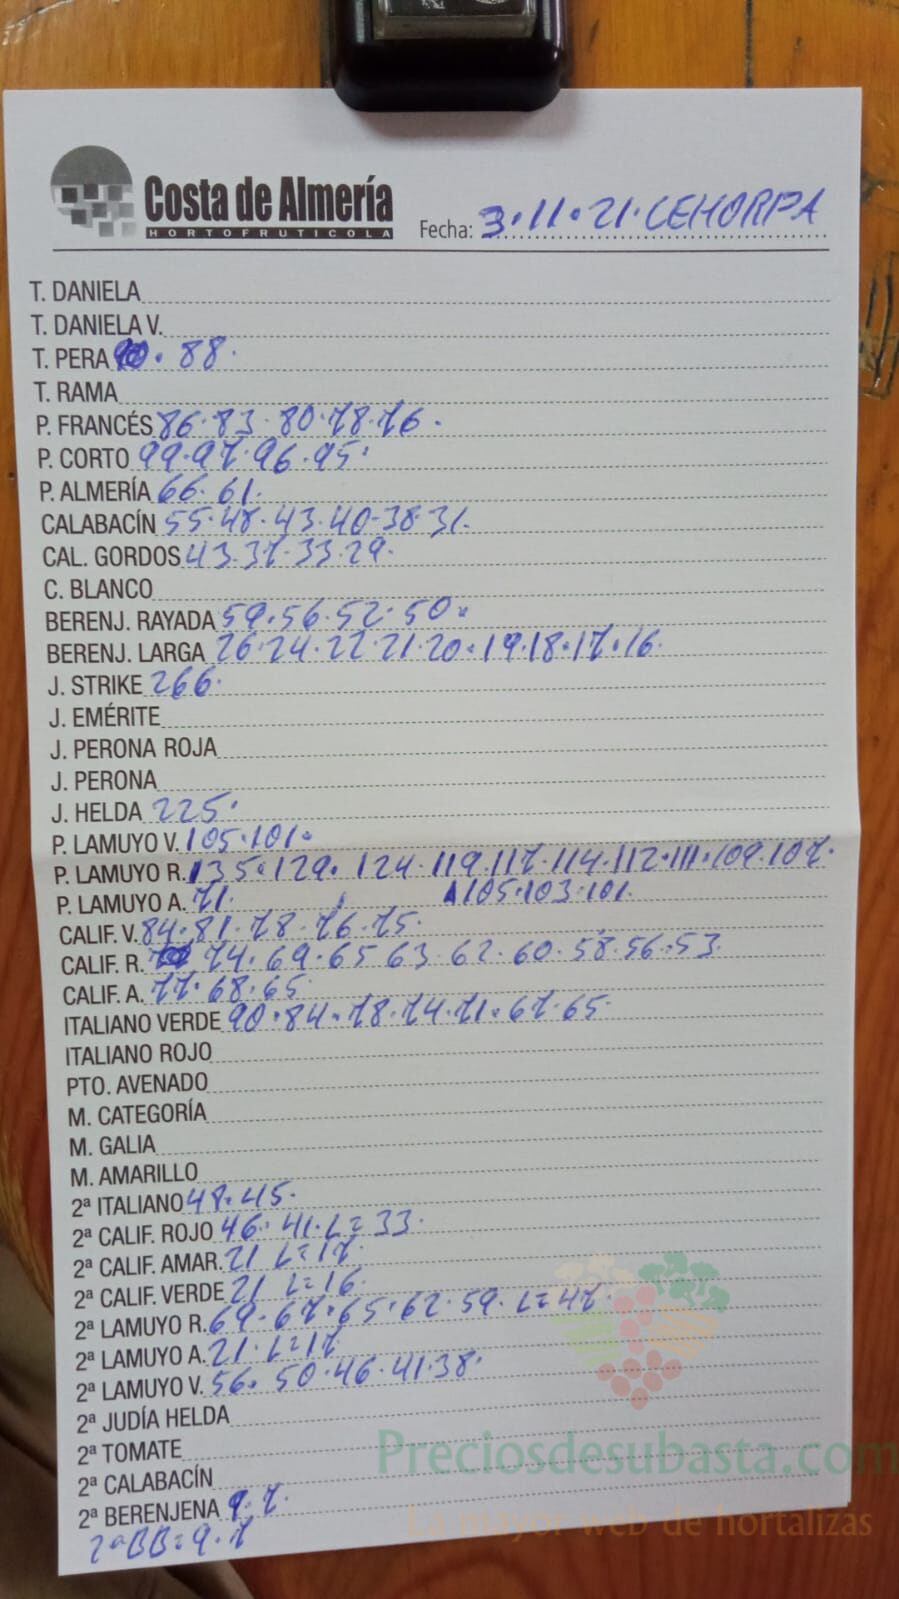 Costa de Almería
HORTOFRUTICOLA
Fecha: 3·11·21·CEHORPA
T. DANIELA
T. DANIELA V.
T. PERA · 88·
T. RAMA
P. FRANCÉS 86·83·80·78·76·
P. CORTO 99·97·96·95·
P. ALMERÍA 66·61·
CALABACÍN 55·48·43·40·38·31·
CAL. GORDOS 43·37·33·29·
C. BLANCO
BERENJ. RAYADA 59·56·52·50·
BERENJ. LARGA 26·24·22·21·20·19·18·17·16·
J. STRIKE 266·
J. EMÉRITE
J. PERONA ROJA
J. PERONA
J. HELDA 225·
P. LAMUYO V. 105·101·
P. LAMUYO R. 135·129·124·119·117·114·112·111·109·107·
P. LAMUYO A. 71· 105·103·101·
CALIF. V. 84·81·78·76·75·
CALIF. R. 74·69·65·63·62·60·58·56·53·
CALIF. A. 77·68·65·
ITALIANO VERDE 90·84·78·74·71·67·65·
ITALIANO ROJO
PTO. AVENADO
M. CATEGORÍA
M. GALIA
M. AMARILLO
2ª ITALIANO 48·45·
2ª CALIF. ROJO 46·41·L=33·
2ª CALIF. AMAR. 21 L=17·
2ª CALIF. VERDE 21 L=16·
2ª LAMUYO R. 69·67·65·62·59·L=47·
2ª LAMUYO A. 21·L=17
2ª LAMUYO V. 56·50·46·41·38·
2ª JUDÍA HELDA
2ª TOMATE
2ª CALABACÍN
2ª BERENJENA 9·7·
2ªBB=9·7
Preciosdesubasta.com
La mayor web de hortalizas